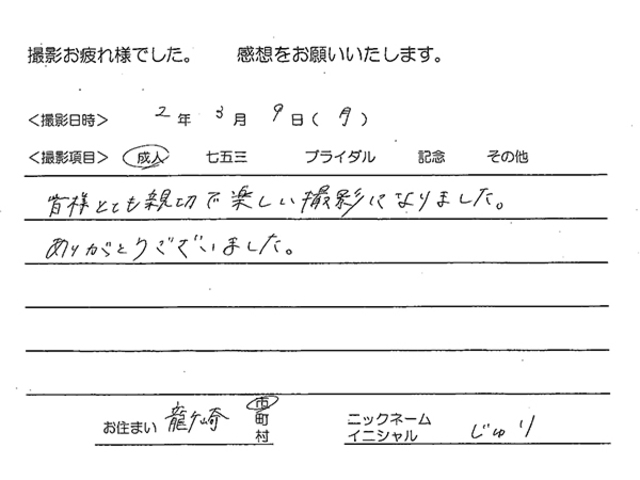 撮影お疲れ様でした。 感想をお願いいたします。
<撮影日時> 2年 3月 9日(月)
<撮影項目> 成人 七五三 ブライダル 記念 その他
皆様とても親切で楽しい撮影になりました。
ありがとうございました。
お住まい 龍ケ崎 市 町 村
ニックネーム イニシャル じゅり